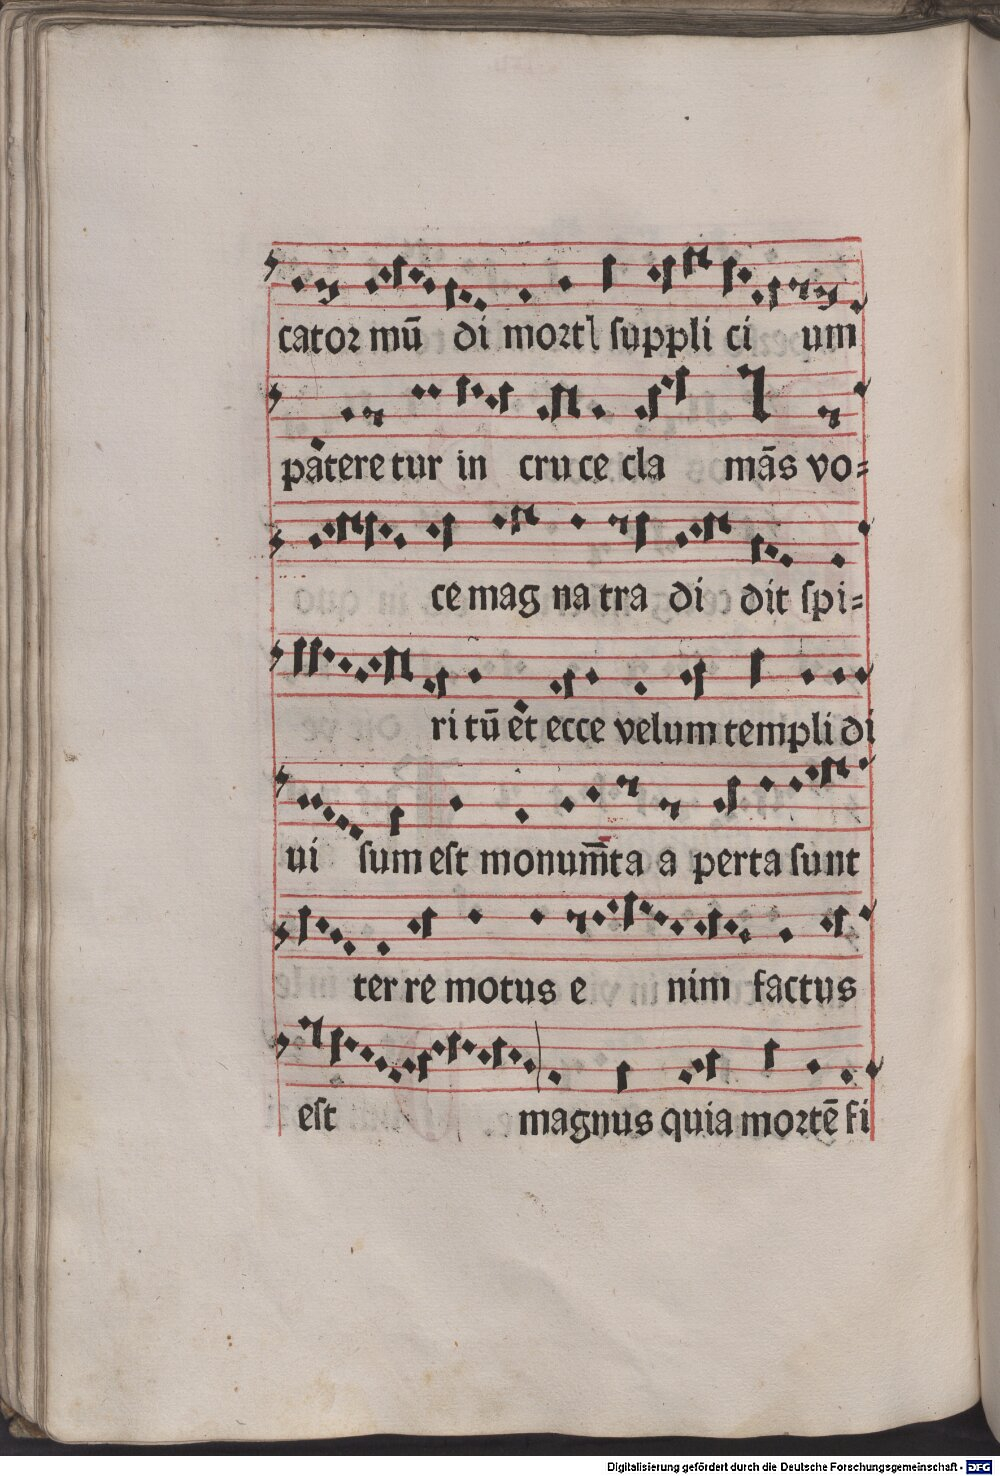 cator mū di mortꝭ ſuppli ci um
pateretur in cruce cla mās vo⸗
ce mag na tra di dit ſpi⸗
ri tū et ecce velum templi di
ui ſum eſt monum̄ta a perta ſunt
ter re motus e nim factus
eſt magnus quia mortē fi
Digitalisierung gefördert durch die Deutsche Forschungsgemeinschaft - DFG